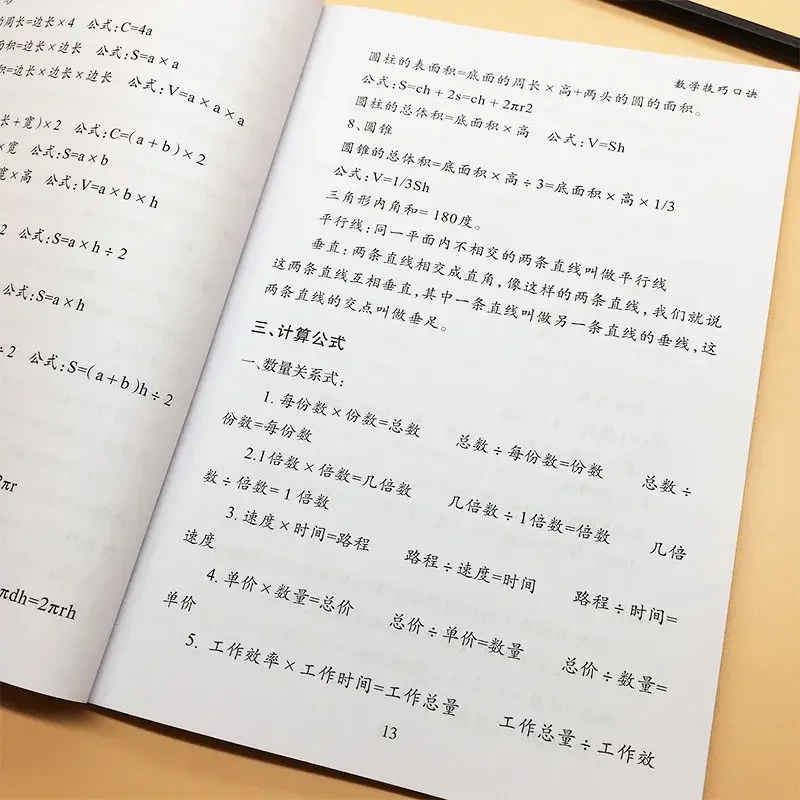 的周长=边长×4 公式:C=4a
面积=边长×边长 公式:S=a×a
积=边长×边长×边长 公式:V=a×a×a
长+宽)×2 公式:C=(a+b)×2
×宽 公式:S=a×b
宽×高 公式:V=a×b×h
2 公式:S=a×h÷2
公式:S=a×h
÷2 公式:S=(a+b)h÷2
2πr
πdh=2πrh
数学技巧口诀
圆柱的表面积=底面的周长×高+两头的圆的面积。
公式:S=ch+2s=ch+2πr2
圆柱的总体积=底面积×高 公式:V=Sh
8、圆锥
圆锥的总体积=底面积×高÷3=底面积×高×1/3
公式:V=1/3Sh
三角形内角和=180度。
平行线:同一平面内不相交的两条直线叫做平行线
垂直:两条直线相交成直角,像这样的两条直线,我们就说
这两条直线互相垂直,其中一条直线叫做另一条直线的垂线,这
两条直线的交点叫做垂足。
三、计算公式
一、数量关系式:
1. 每份数×份数=总数 总数÷每份数=份数 总数÷
份数=每份数
2.1倍数×倍数=几倍数 几倍数÷1倍数=倍数 几倍
数÷倍数=1倍数
3. 速度×时间=路程 路程÷速度=时间 路程÷时间=
速度
4. 单价×数量=总价 总价÷单价=数量 总价÷数量=
单价
5. 工作效率×工作时间=工作总量 工作总量÷工作效
13